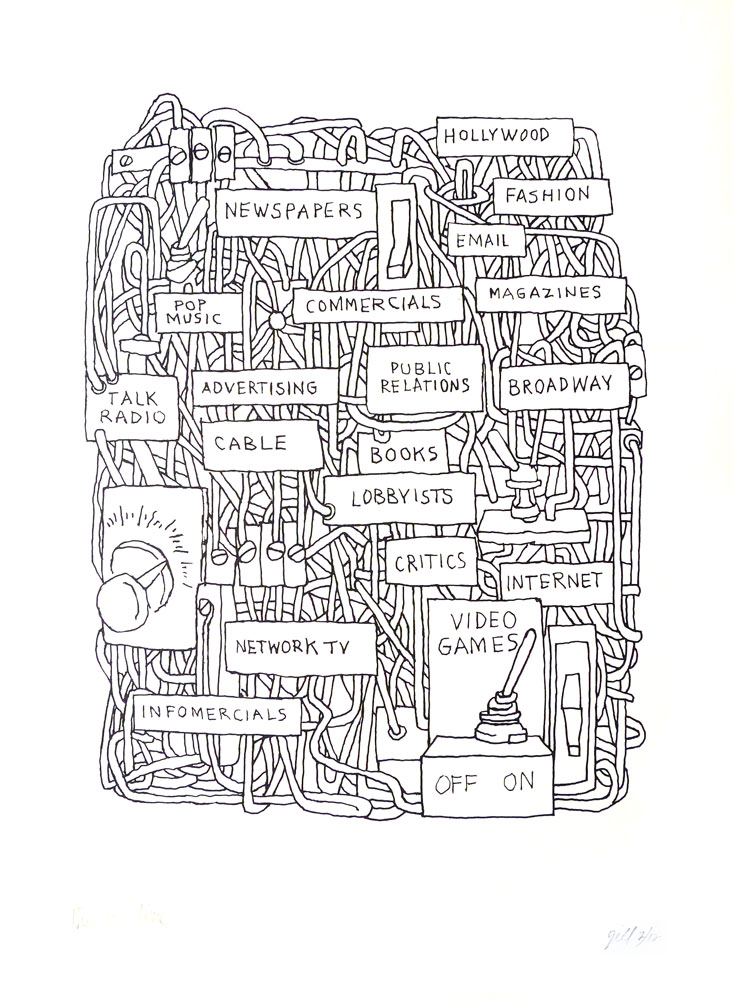 HOLLYWOOD
FASHION
NEWSPAPERS
EMAIL
MAGAZINES
POP
MUSIC
COMMERCIALS
PUBLIC
RELATIONS
TALK
RADIO
ADVERTISING
BROADWAY
CABLE
BOOKS
LOBBYISTS
CRITICS
INTERNET
VIDEO
GAMES
NETWORK TV
INFOMERCIALS
OFF ON